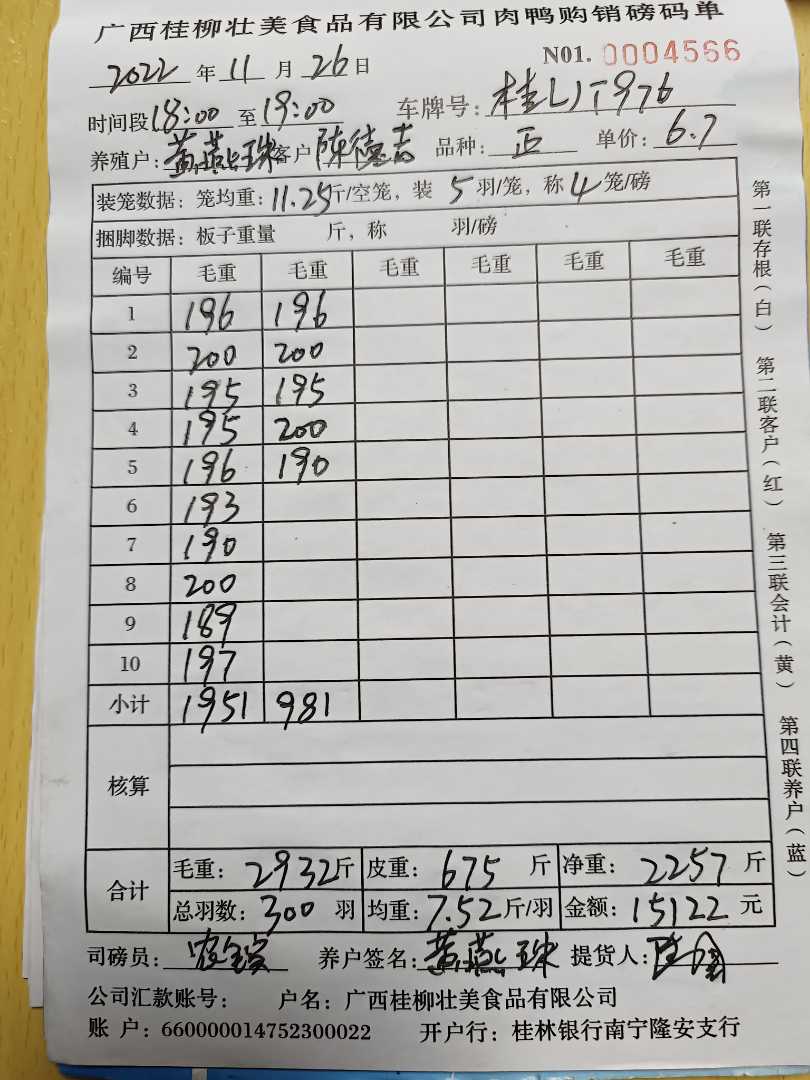 广西桂柳壮美食品有限公司肉鸭购销磅码单
2022 年 11 月 26 日 N01. 0004566
时间段 18:00 至 19:00 车牌号: 桂LJT976
养殖户: 黄燕珠 客户 陈德吉 品种: 正 单价: 6.7
装笼数据: 笼均重: 11.25 斤/空笼, 装 5 羽/笼, 称 4 笼/磅
捆脚数据: 板子重量 斤, 称 羽/磅
编号 毛重 毛重 毛重 毛重 毛重 毛重
1 196 196
2 200 200
3 195 195
4 195 200
5 196 190
6 193
7 190
8 200
9 189
10 197
小计 1951 981
核算
合计 毛重: 2932 斤 皮重: 675 斤 净重: 2257 斤
总羽数: 300 羽 均重: 7.52 斤/羽 金额: 15122 元
司磅员: 养户签名: 黄燕珠 提货人:
公司汇款账号: 户名: 广西桂柳壮美食品有限公司
账 户: 660000014752300022 开户行: 桂林银行南宁隆安支行
第一联存根(白) 第二联客户(红) 第三联会计(黄) 第四联养户(蓝)